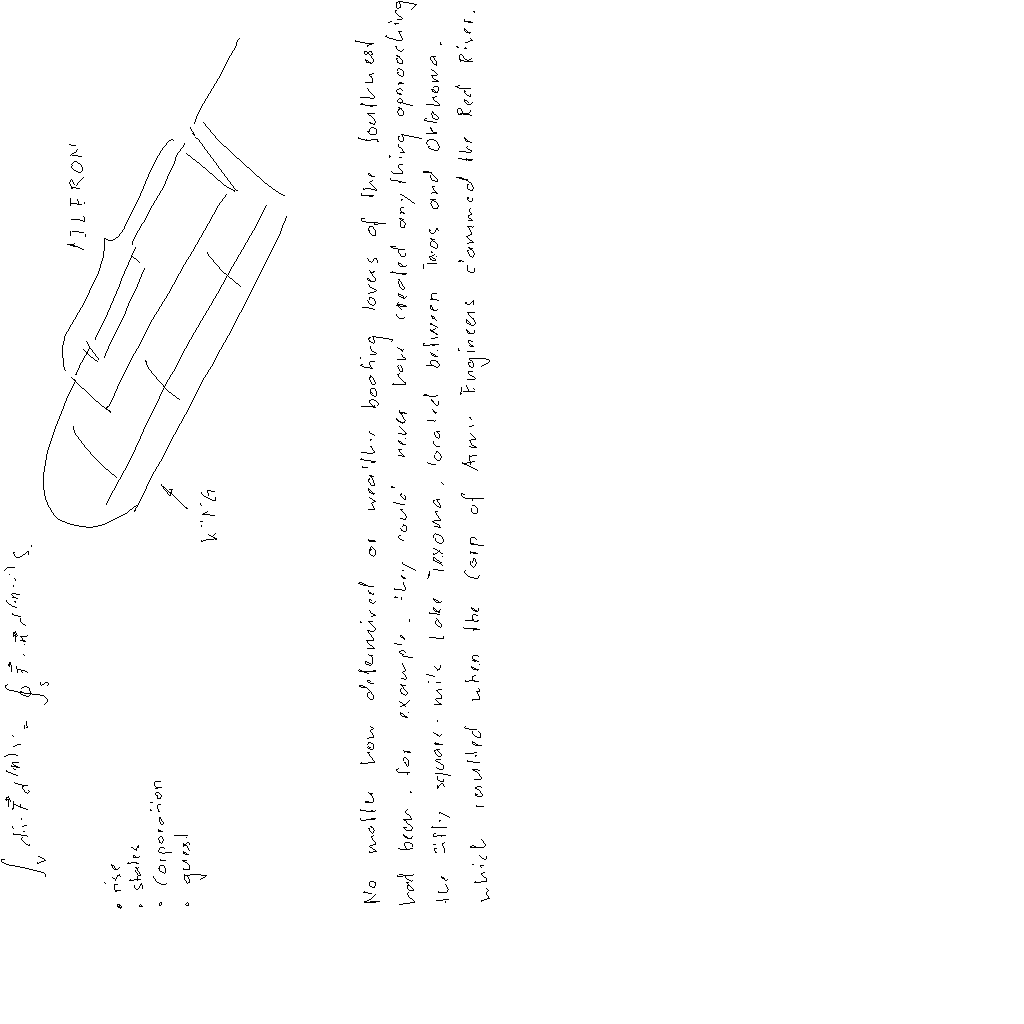 ∫_V div F⃗ d^(n)V = ∮_S F⃗ · n⃗ d^(n-1) S.
• rise
• states
• Corporation
• guest
KING
No matter how determined or wealthy boating lovers of the Southwest
had been, for example, they could never have created anything approaching
the fifty square-mile Lake Texoma, located between Texas and Oklahoma,
which resulted when the Corp of Army Engineers dammed the Red River.